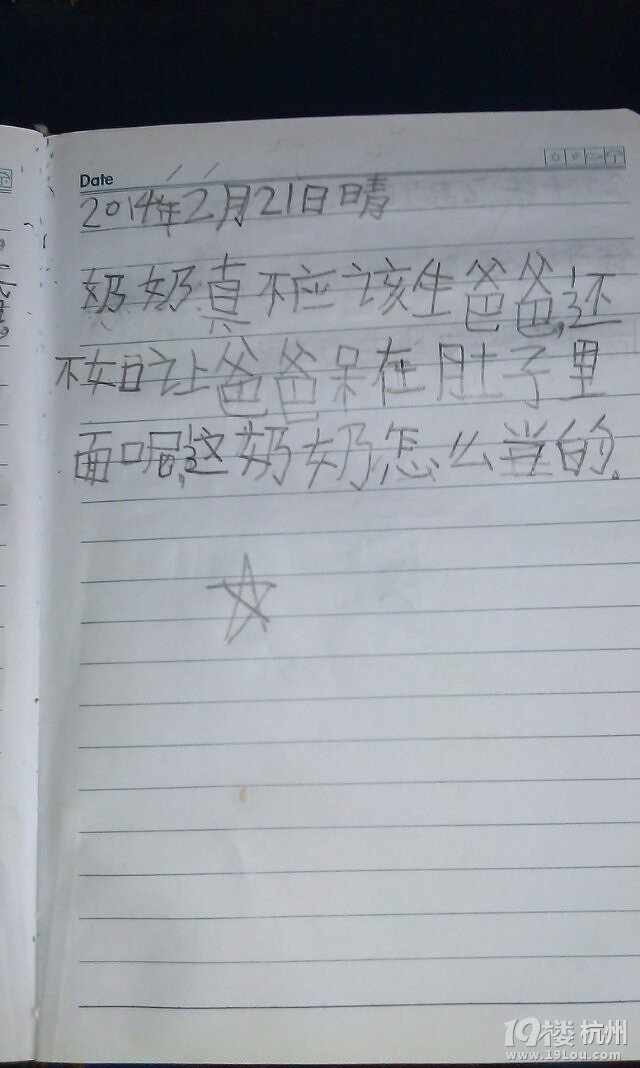 Date
2014年2月21日晴
奶奶真不应该生爸爸,还
不如让爸爸呆在肚子里
面呢,这奶奶怎么当的.
19楼 杭州
www.19Lou.com